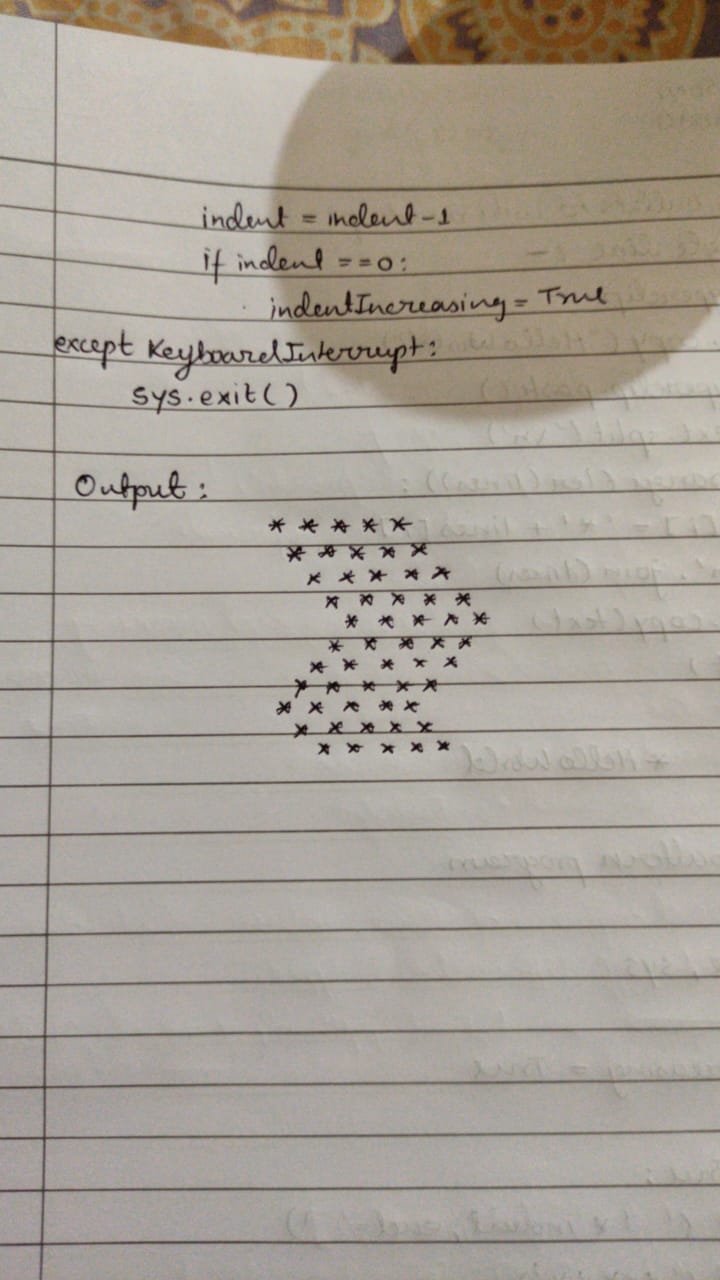 indent = indent-1
if indent ==0:
indentIncreasing = True
except KeyboardInterrupt:
sys.exit()
Output:
* * * * *
* * * * *
* * * * *
* * * * *
* * * * *
* * * * *
* * * * *
* * * * *
* * * * *
* * * * *
* * * * *